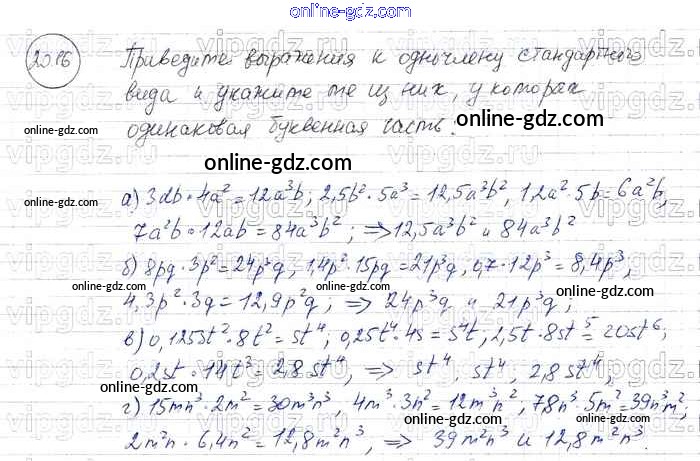 online-gdz.com
20.16 Приведите выражения к одночлену стандартного
вида и укажите те из них, у которых
одинаковая буквенная часть.
online-gdz.com online-gdz.com
online-gdz.com
а) 3ab·4a² = 12a³b; 2,5b²·5a³ = 12,5a³b², 1,2a²·5b = 6a²b,
7a²b·12ab = 84a³b²; ⇒ 12,5a³b² и 84a³b²
online-gdz.com
б) 8pq·3p² = 24p³q, 1,4p²·15pq = 21p³q, 0,7·12p³ = 8,4p³;
4,3p²·3q = 12,9p²q; ⇒ 24p³q и 21p³q;
online-gdz.com online-gdz.com
в) 0,125st²·8t² = st⁴, 0,25t⁴·4s = s⁴t; 2,5t·8st⁵ = 20st⁶;
0,2st·14t³ = 2,8st⁴, ⇒ st⁴, st⁴, 2,8st⁴;
online-gdz.com online-gdz.com
г) 15mn³·2m² = 30m³n³, 4m³·3n² = 12m³n², 7,8n³·5m² = 39n³m²,
online-gdz.com online-gdz.com
2m²n·6,4n² = 12,8m²n³, ⇒ 39m²n³ и 12,8m²n³.
online-gdz.com